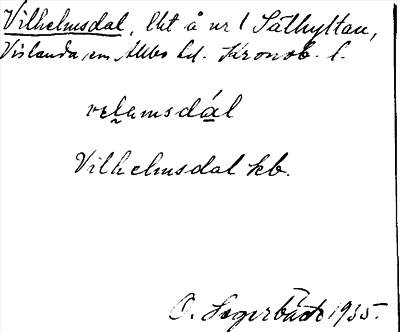 Vilhelmsdal, lht å nr 1 Såthyttan,
Vislanda sn Allbo hd. Kronob. l.
velamsdál
Vilhelmsdal kb.
O. Segerbäck 1935.